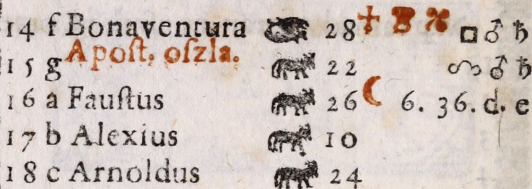 14 f Bonaventura 28 □ ♂ ♄
15 g Apoſt. oſzla. 22 ☍ ♂ ♄
16 a Fauſtus 26 ☾ 6. 36. d. e
17 b Alexius 10
18 c Arnoldus 24